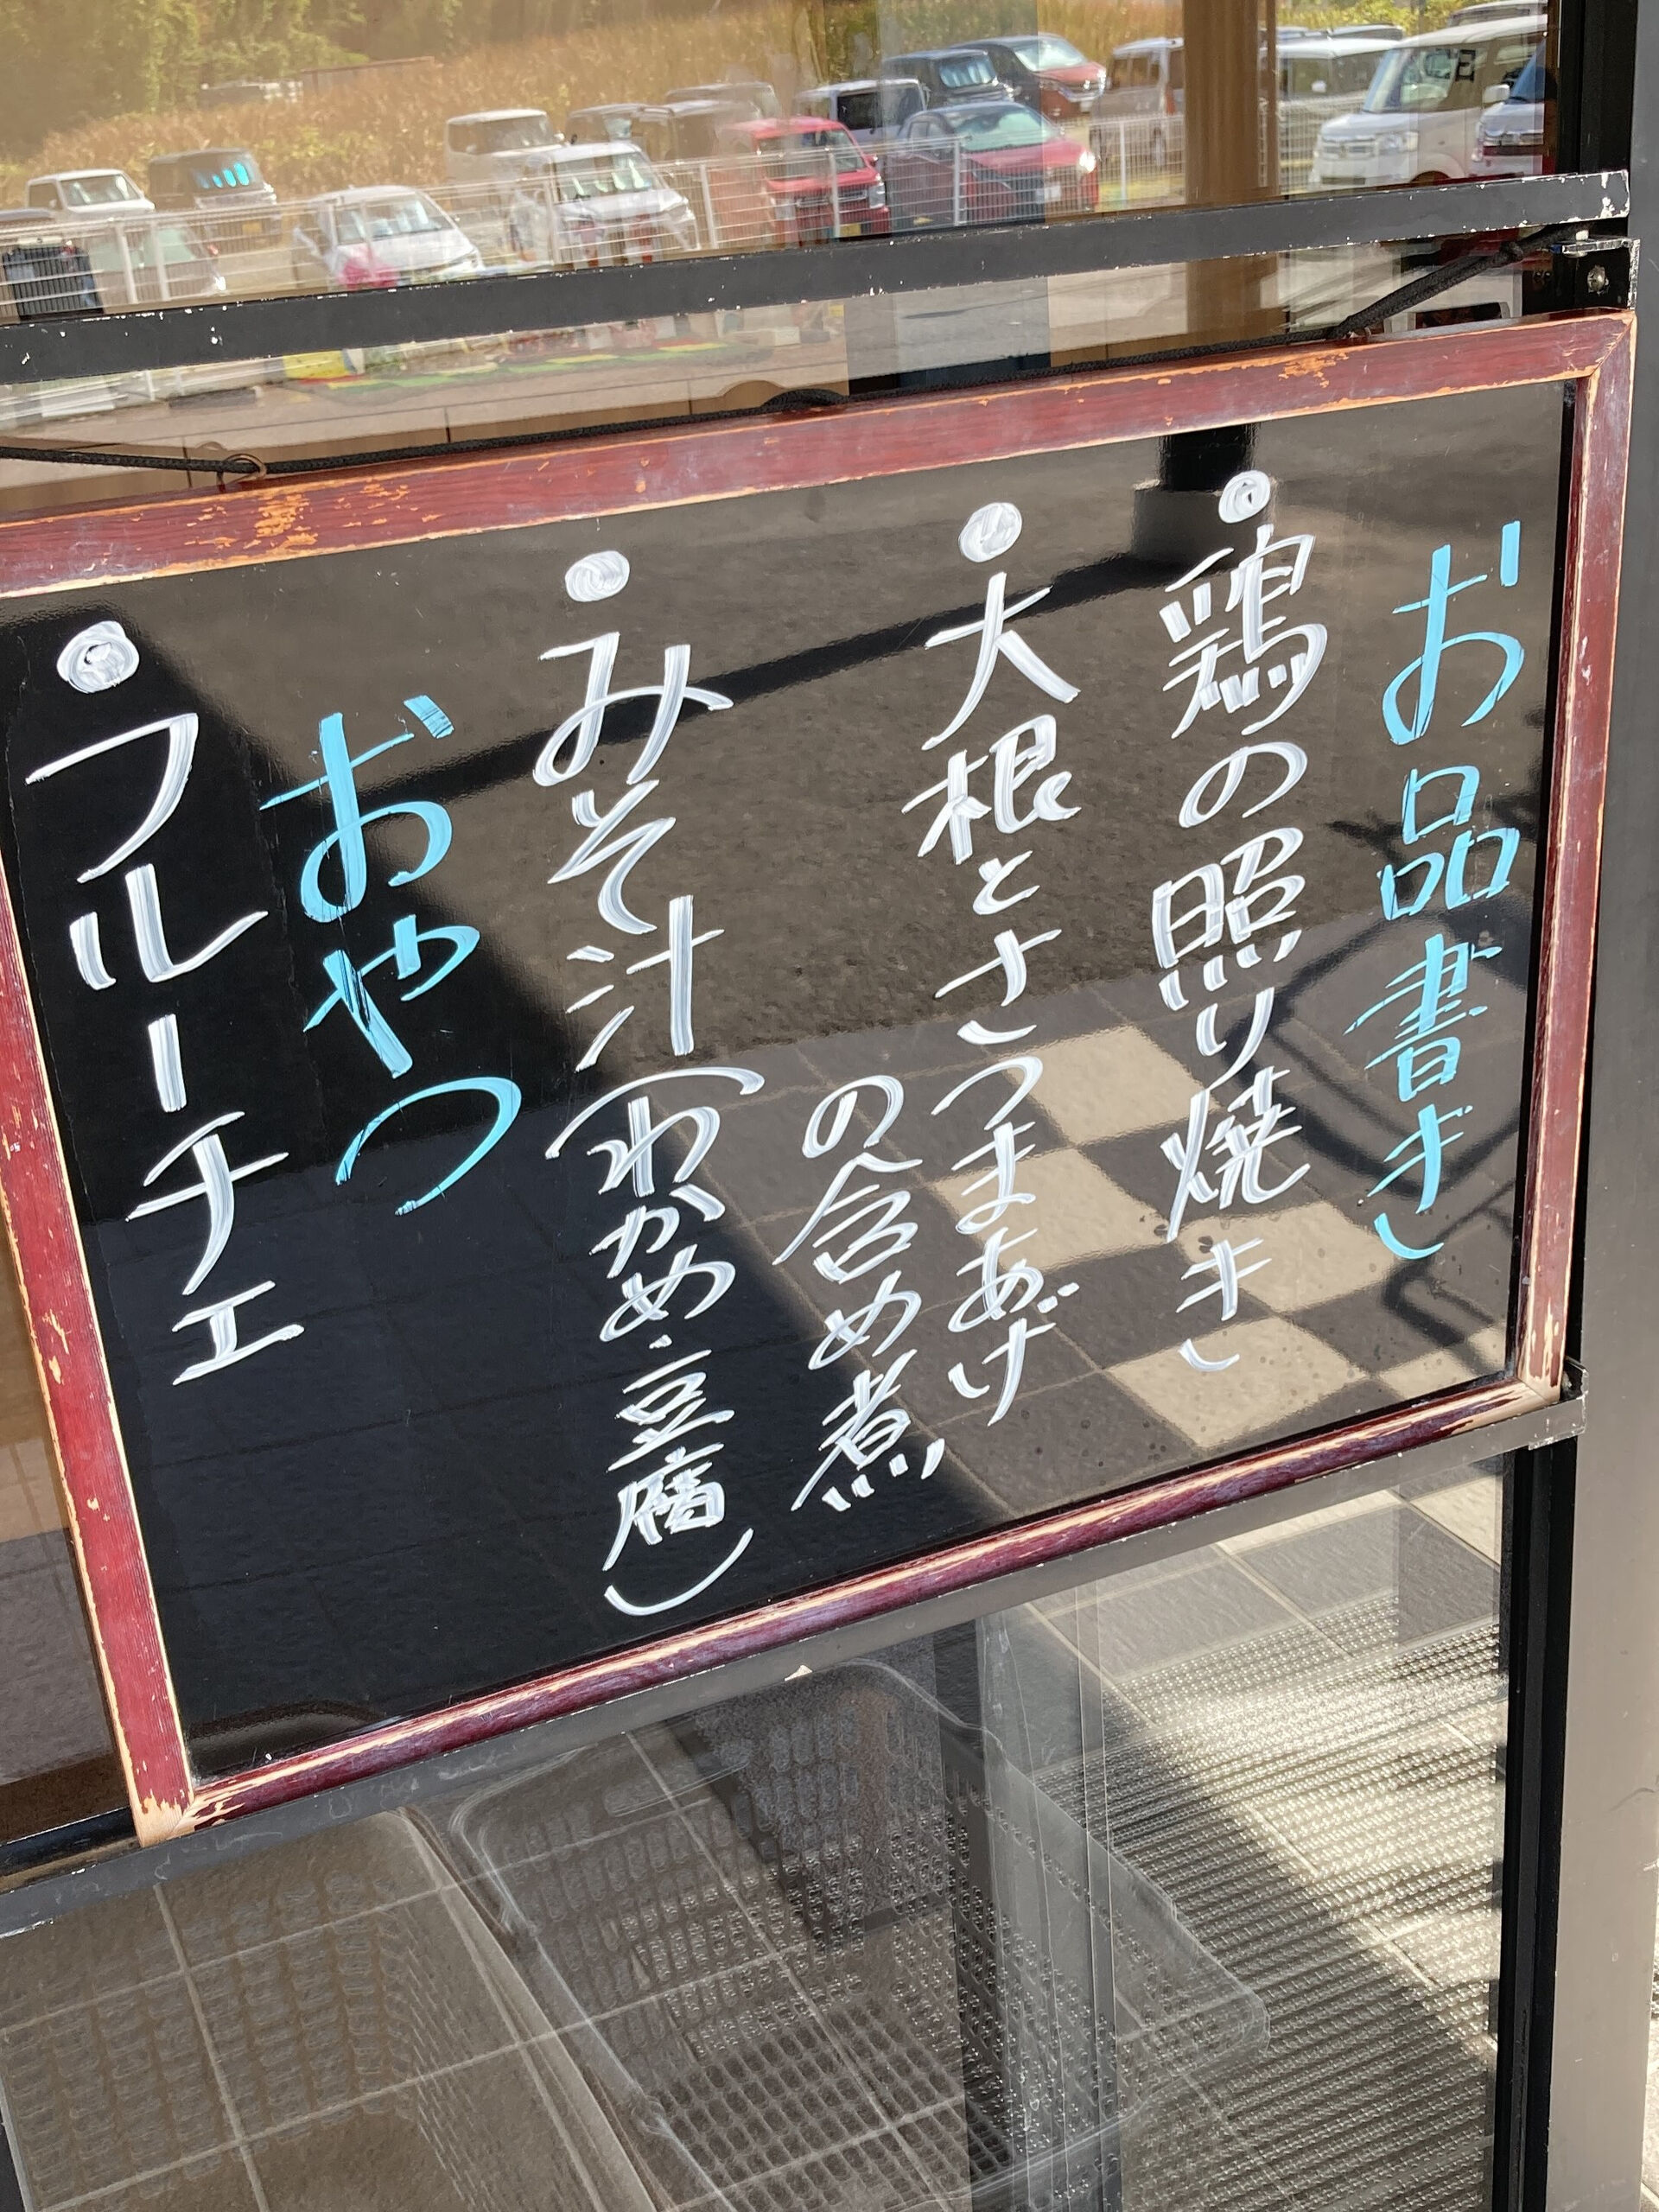 お品書き
鶏の照り焼き
大根とさつまあげ
の含め煮
みそ汁(わかめ・豆腐)
おやつ
フルーチェ